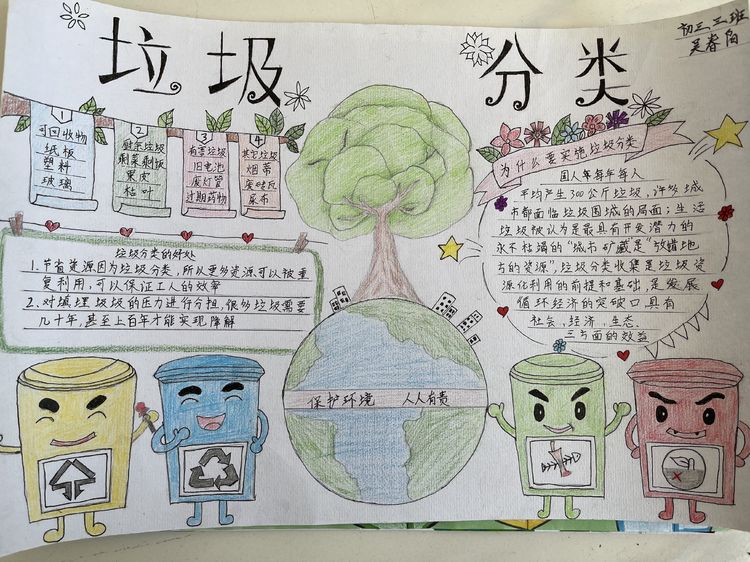 垃圾分类
初三三班
1
可回收物
纸板
塑料
玻璃
2
厨余垃圾
剩菜剩饭
果皮
枯叶
3
有害垃圾
旧电池
废灯管
过期药物
4
其它垃圾
烟蒂
废砖瓦
尿布
垃圾分类的好处
1.节省资源因为垃圾分类,所以更多资源可以被重
复利用,可以保证工人的效率
2.对填埋圾圾的压力进行分担,很多垃圾需要
几十年,甚至上百年才能实现降解
为什么要实施垃圾分类
国人年每年每年人
平均产生300公斤垃圾,许多城
市都面临垃圾围城的局面;生活
垃圾被认为是最具有开发潜力的
永不枯竭的“城市矿藏是“放错地
方的资源”,垃圾分类收集是垃圾资
源化利用的前提和基础,是发展
循环经济的突破口具有
社会、经济、生态、
三方面的效益
保护环境 人人有责